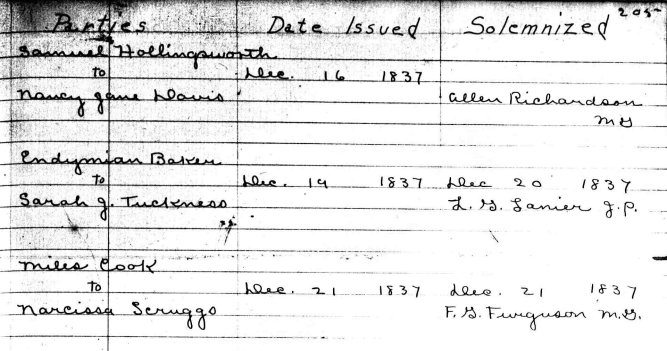 Parties Date Issued Solemnized
Samuel Hollingsworth
to Dec. 16 1837
Nancy Jane Davis Allen Richardson
M G
Endymian Baker
to Dec. 19 1837 Dec 20 1837
Sarah J. Tuckness L. G. Lanier J. P.
Miles Cook
to Dec. 21 1837 Dec. 21 1837
Narcissa Scruggs F. G. Furguson M. G.